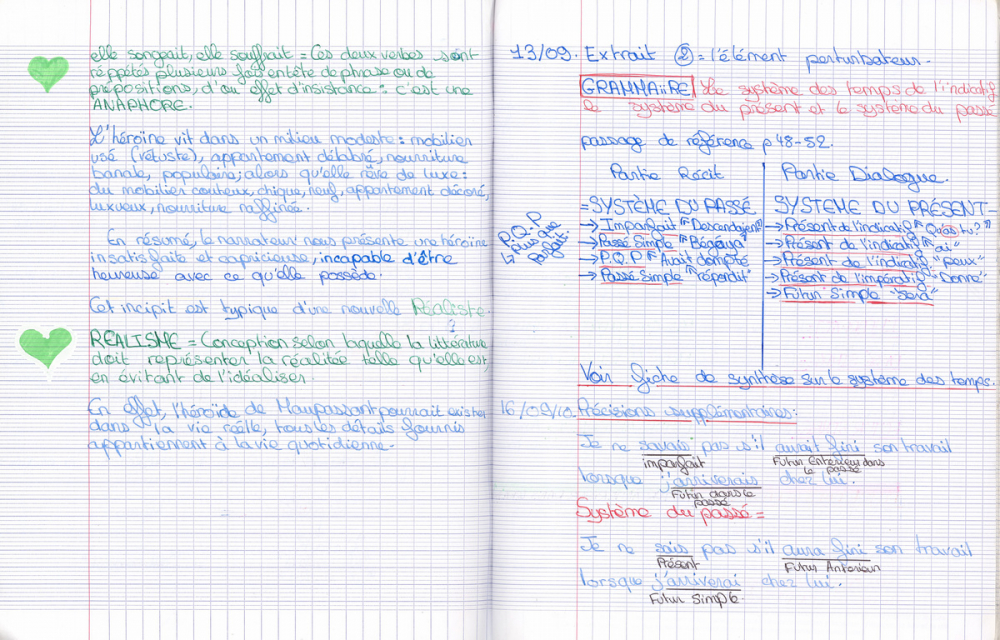 elle songeait, elle souffrait = Ces deux verbes sont
réppétés plusieurs fois en tête de phrase ou de
prépositions, d'ou effet d'insistance : c'est une
ANAPHORE.
L'héroïne vit dans un milieu modeste : mobilier
usé (vétuste), appartement délabré, nourriture
banale, populaire; alors qu'elle rêve de luxe :
du mobilier couteux, chique, neuf, appartement décoré,
luxueux, nourriture raffinée.
En résumé, le narrateur nous présente une héroïne
insatisfaite et capricieuse, incapable d'être
heureuse avec ce qu'elle possède.
Cet incipit est typique d'une nouvelle Réaliste.
?
REALISME = Conception selon laquelle la littérature
doit représenter la réalitée telle qu'elle est
en évitant de l'idéaliser.
En effet, l'héroïde de Maupassant pourrait exister
dans la vie réelle, tous les détails fournis
appartiennent à la vie quotidienne.
13/09. Extrait ② = l'élément perturbateur.
GRAMMAiiRE le système des temps de l'indicatif
le système du présent et le système du passé
passage de référence p 48-52.
Partie Récit
=SYSTÈME DU PASSÉ
→ Imparfait "Descendaient"
→ Passé Simple "Bégaya"
→ P.Q.P "Avait dompté
→ Passé Simple "répondit"
P.Q.P
↳ Plus que
parfait.
Partie Dialogue.
SYSTEME DU PRÉSENT=
→ Présent de l'indicatif "Qu'as tu?"
→ Présent de l'indicatif "ai"
→ Présent de l'indicatif "peux"
→ Présent de l'impératif "Donne"
→ Futur Simple "Sera"
Voir fiche de synthèse sur le système des temps.
16/09/10. Précisions supplémentaires :
Je ne savais pas s'il aurait fini son travail
imparfait Futur Enterieur dans
le passé
lorsque j'arriverais chez lui.
Futur dans le
passé
Système du passé =
Je ne sais pas s'il aura fini son travail
Présent Futur Antérieur
lorsque j'arriverai chez lui.
Futur Simple.